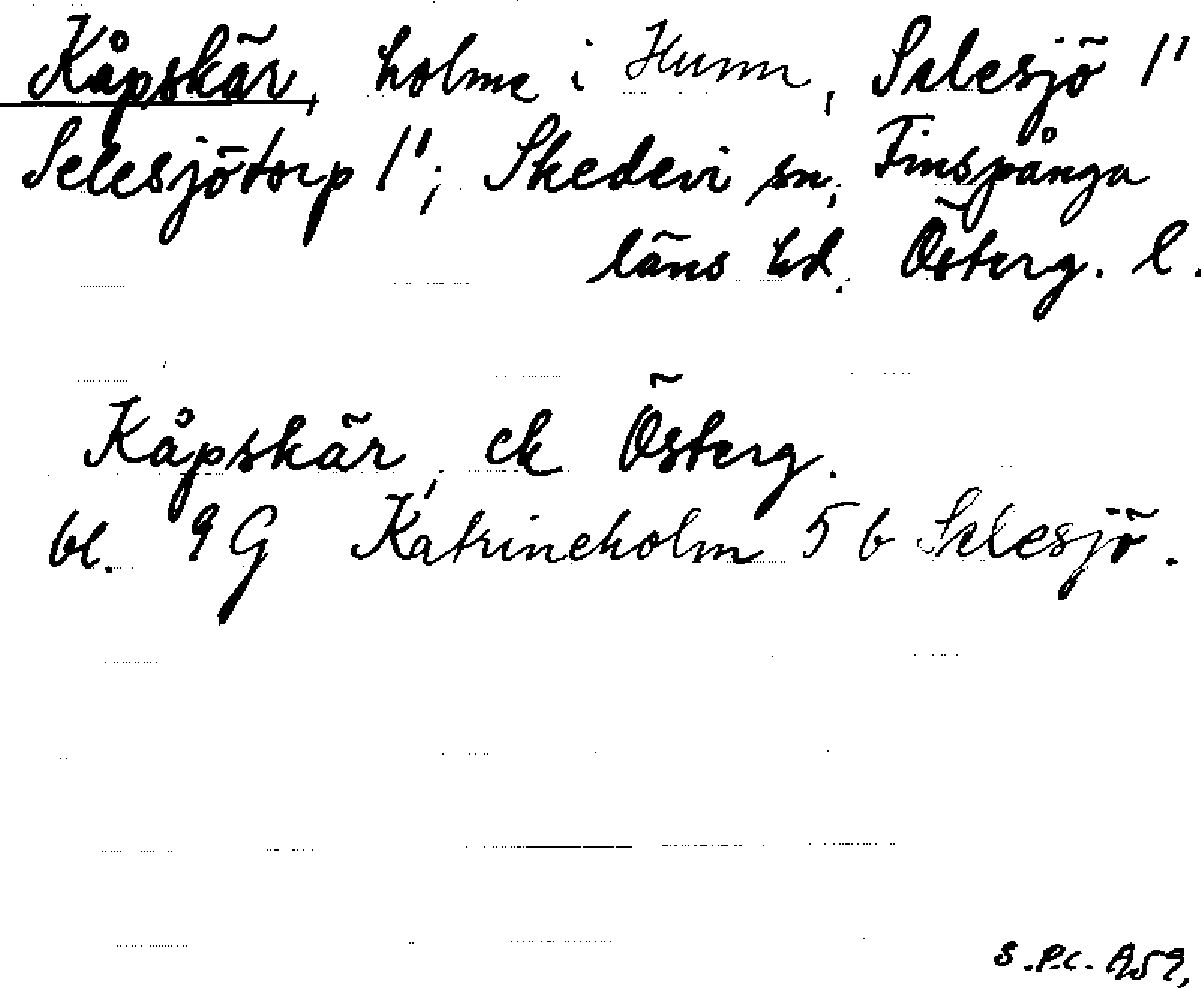 Kåpskär, holme i Hunn, Selesjö 1'
Selesjötorp 1'; Skedevi sn, Finspånga
läns hd. Österg. l.
Kåpskär, ek Österg.
bl. 9G Katrineholm 5 b Selesjö.
S.P.C. 1959,